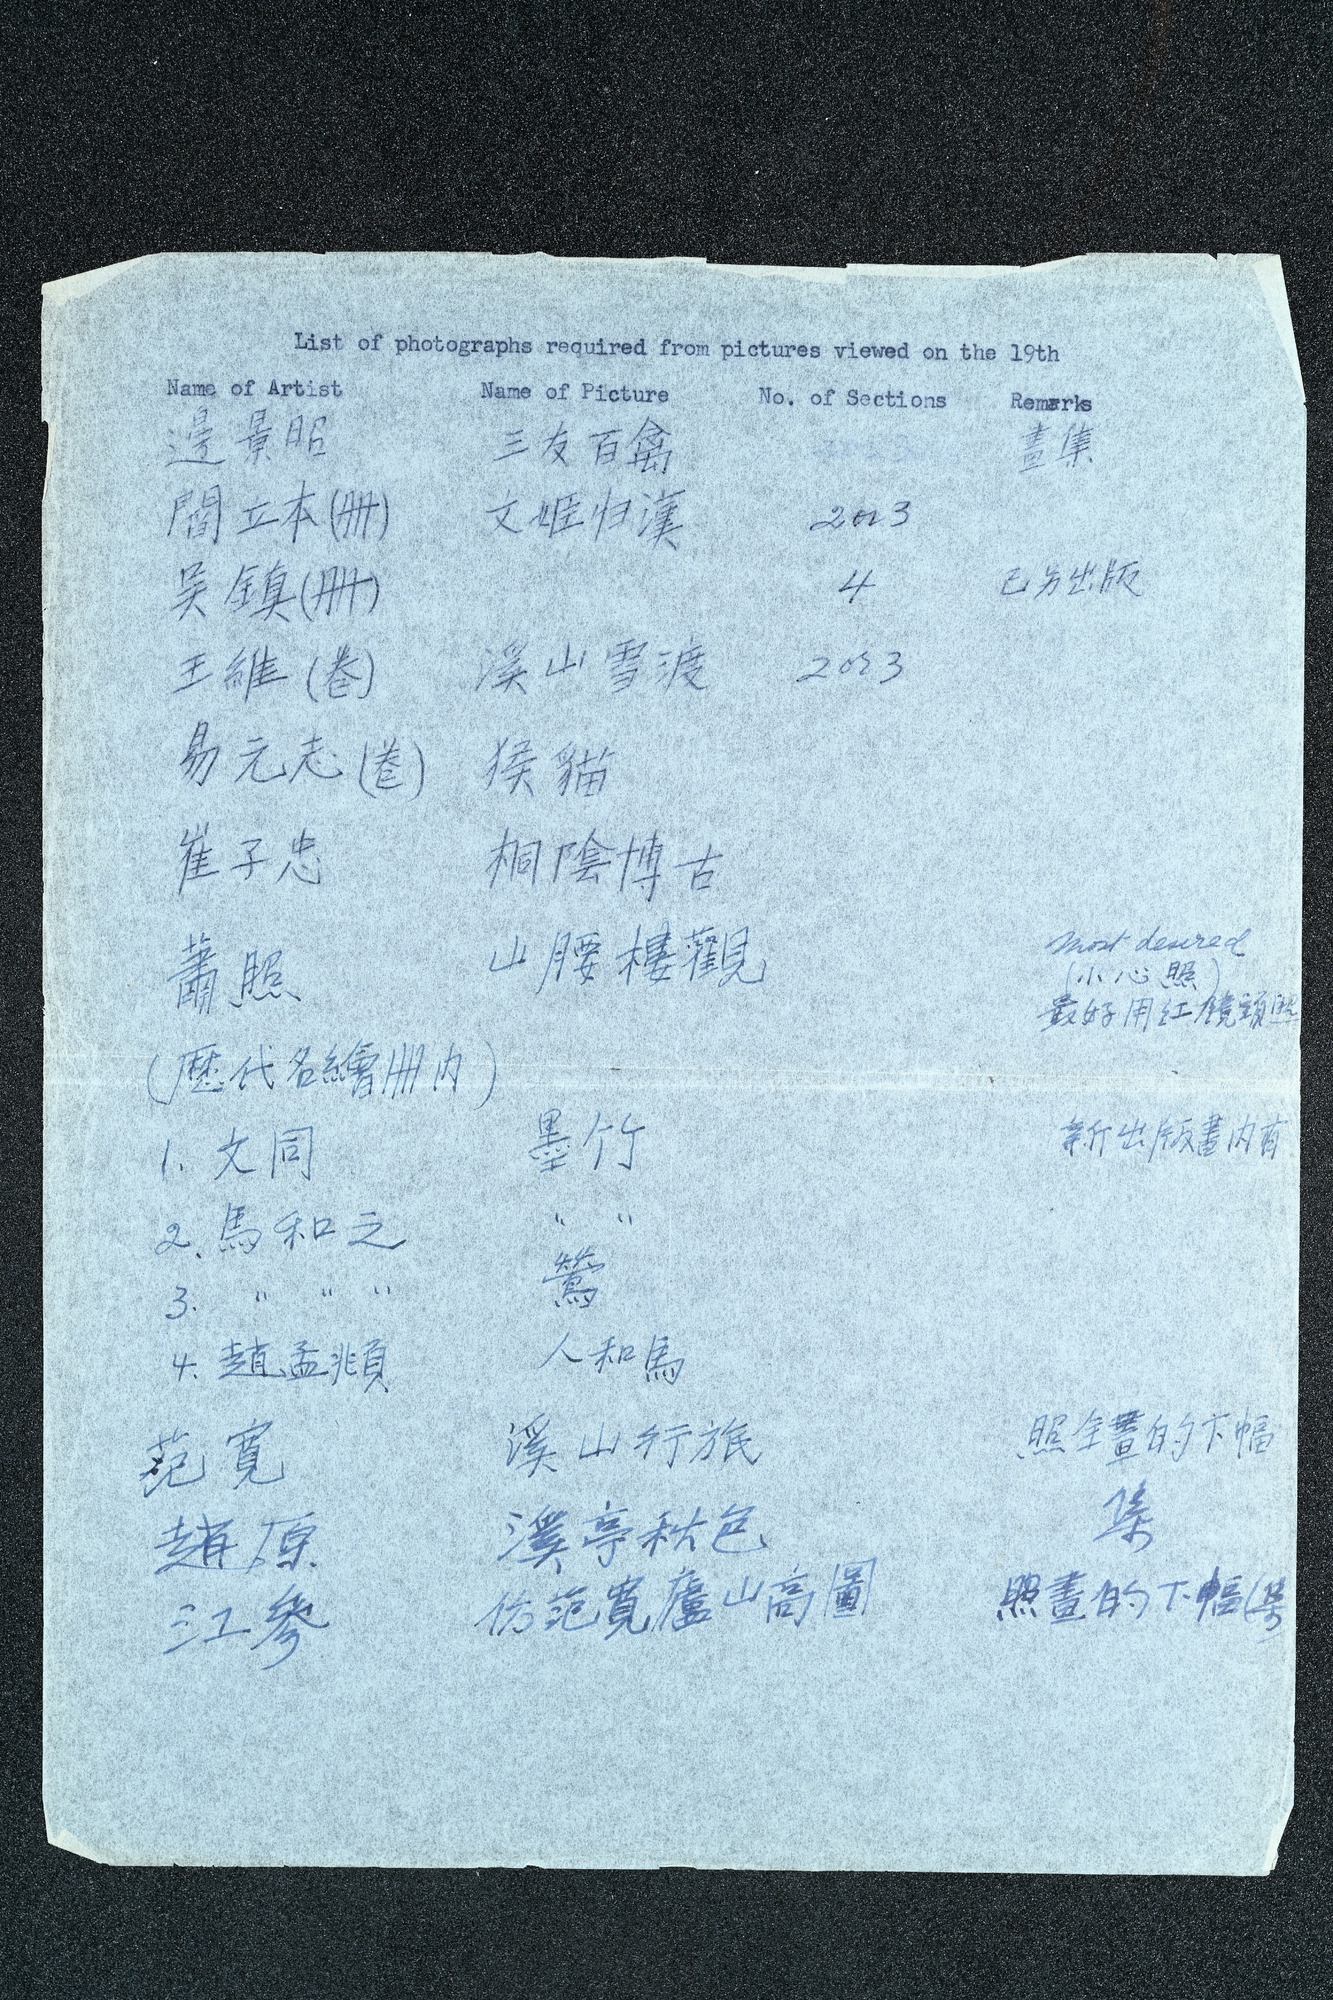 List of photographs required from pictures viewed on the 19th
Name of Artist Name of Picture No. of Sections Remarks
邊景昭 三友百禽 畫集
閻立本(册) 文姬归漢 2 or 3
吳鎮(册) 4 已另出版
王維(卷) 溪山雪渡 2 or 3
易元志(卷) 猴貓
崔子忠 桐陰博古
蕭照 山腰樓觀 most desired
(小心照)
最好用红鏡頭照
(歷代名繪册内)
1. 文同 墨竹 新出版畫内有
2. 馬和之 " "
3. " " " 鶯
4. 趙孟頫 人和馬
范寬 溪山行旅 照全畫的下幅
趙原 溪亭秋色
江參 仿范寬廬山高圖 照畫的下幅